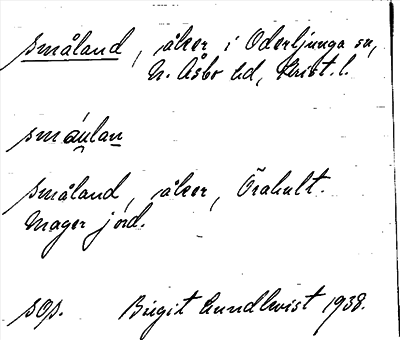 Småland, åker i Oderljunga sn,
N. Åsbo hd, Krist. l.
smáulan
Småland, åker, Örahult.
Mager jord.
sop. Birgit Lundkvist 1938.